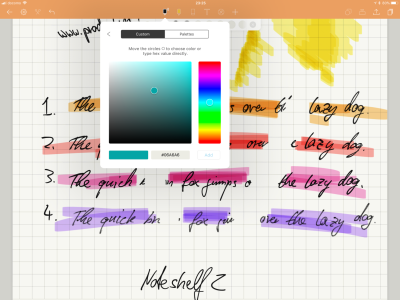 www.prod
Custom Palettes
Move the circles to choose color or
type hex value directly.
1. The over lazy dog.
2. The over lazy dog.
3. The quick fox jumps o the lazy dog.
Add
4. The quick fox over the lazy dog.
Noteshelf 2